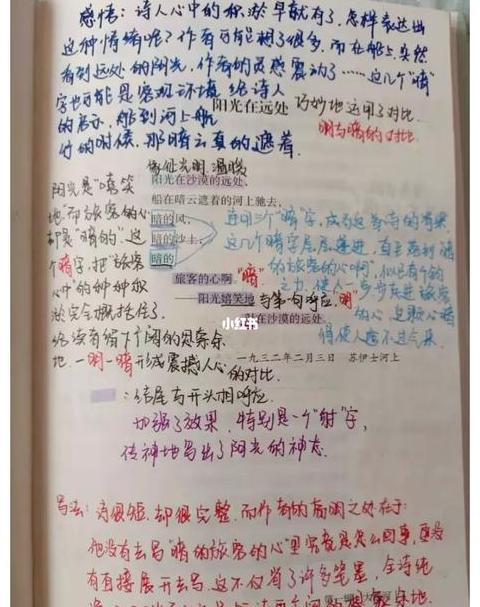 感情:诗人心中的积淤早就有了,怎样表达出
这种情绪呢?作者可能想了很多,而在船上,突然
看到远处的阳光,作者的灵感震动了……这几个"暗"
字也可能是客观环境给诗人
的启示,船到河上航
行的时候,那暗云真的遮着
阳光在远处
巧妙地运用了对比.
明与暗的对比.
像征光明.温暖
阳光在沙漠的远处,
船在暗云遮着的河上驰去,
暗的风,
暗的沙土,
暗的
旅客的心啊。
——阳光嬉笑地
射在沙漠的远处。
阳光是"嘻笑
地"而旅客的心
却是"暗的".这
个暗字,把"旅客
心中"的种种积
淤完全概括住了
给读者留下了阔的思索余
地.一明一暗形成震撼人心
的对比.
连用三个"暗"字,成为这首诗的
这几个暗字层层递进,直至延到"暗
的旅客的心啊",似已有千钧
之力,使人一步步走进旅客
的心
得使人透不过气来
"暗"
与第一句呼应."明"
小红书
一九三二年二月三日 苏伊士河上
:结尾与开头相呼应.
加强了效果,特别是一个"射"字,
传神地写出了阳光的神态.
写法:诗很短,却很完整.而作者的高明之处在于:
他没有去写"暗的旅客的心"里究竟是怎么回事,更没
有直接展开去写.这不仅省了许多笔墨,全诗纯